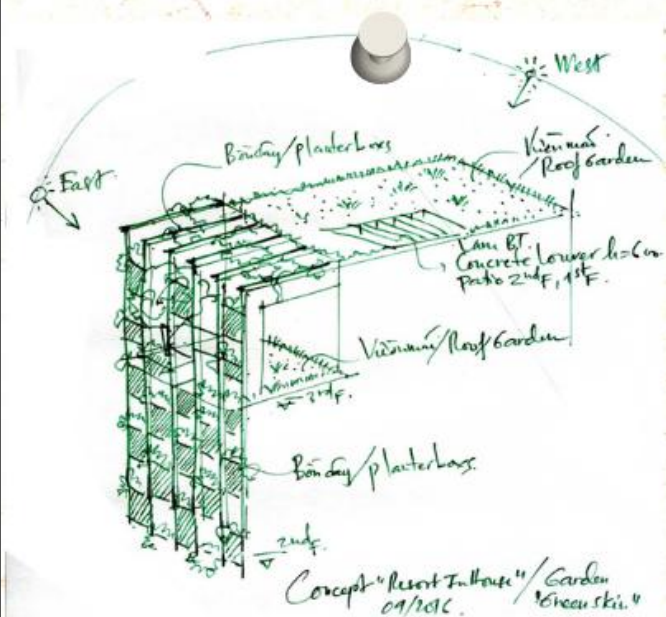 West
East
Bồn cây/planterboxs
Vườn mái
/Roof Garden
Lam BT.
Concrete Louver h=600
Patio 2ndF, 1stF.
Vườn mái/Roof Garden
Bồn cây/planterboxs.
2ndF.
Concept "Resort In House" / Garden
09/2016. "Green skin"